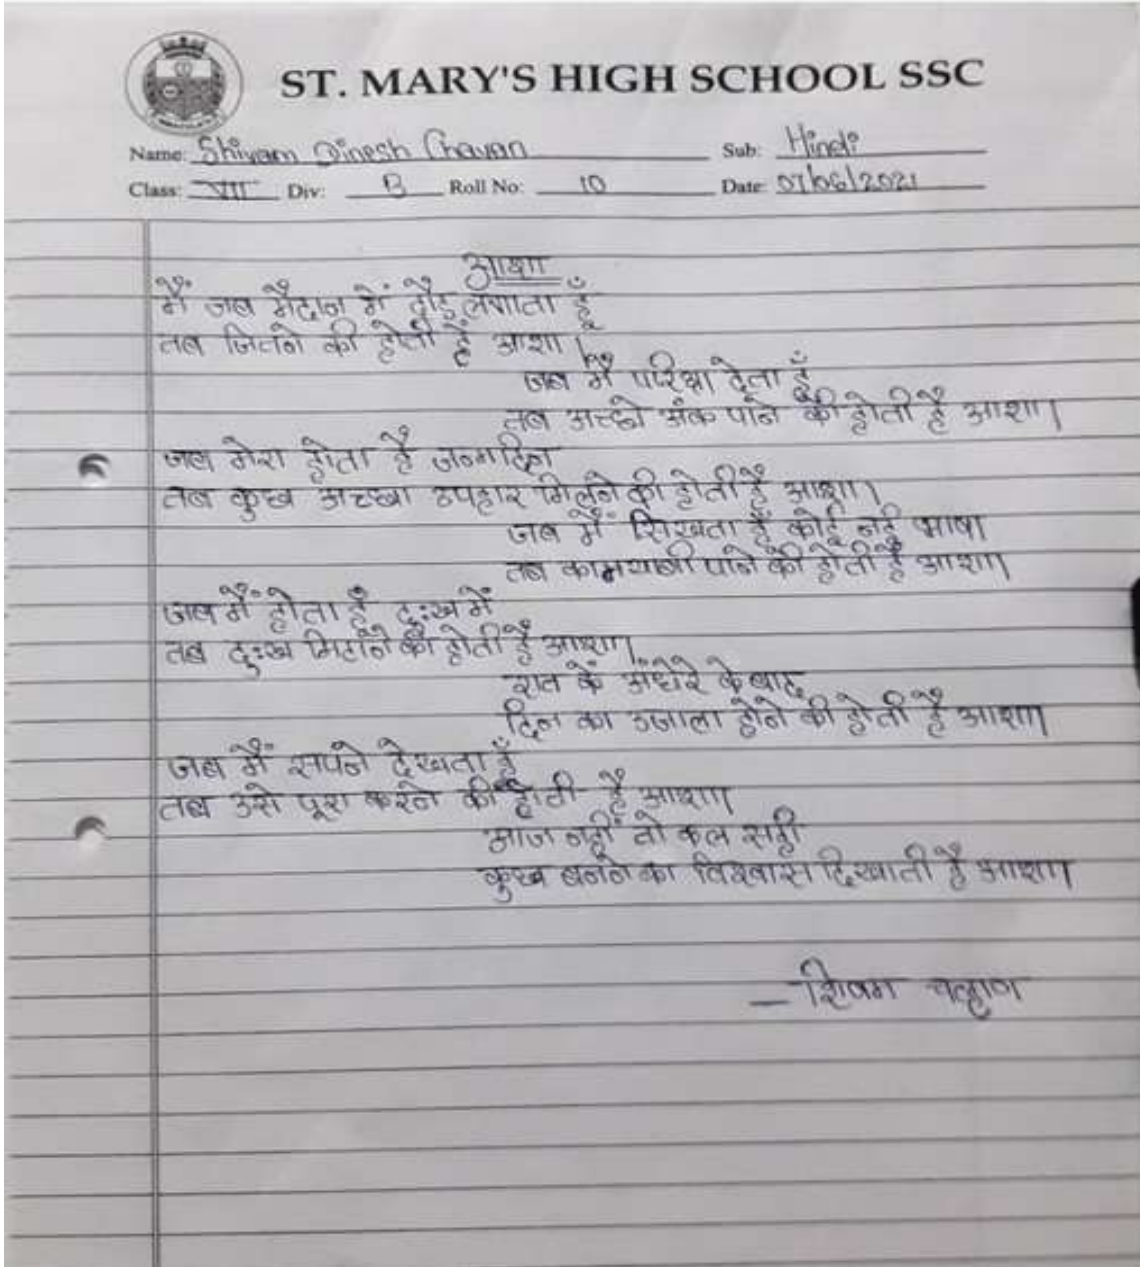 ST. MARY'S HIGH SCHOOL SSC
Name: Shivam Dinesh Chavan Sub: Hindi
Class: VII Div: B Roll No: 10 Date: 07/06/2021
आशा
मैं जब मैदान में दौड़ लगाता हूँ
तब जितने की होती है आशा।
जब मैं परिक्षा देता हूँ
तब अच्छे अंक पाने की होती है आशा।
जब मेरा होता है जन्मदिन
तब कुछ अच्छा उपहार मिलने की होती है आशा।
जब मैं सिखता हूँ कोई नई भाषा
तब कामयाबी पाने की होती है आशा।
जब मैं होता हूँ दुःख में
तब दुःख मिटाने की होती है आशा।
रात के अंधेरे के बाद
दिन का उजाला होने की होती है आशा।
जब मैं सपने देखता हूँ
तब उसे पूरा करने की होती है आशा।
आज नहीं तो कल सही
कुछ बनने का विश्वास दिखाती है आशा।
– शिवम चव्हाण